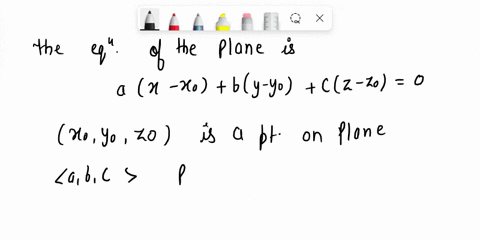 the eqⁿ. of the plane is
a (x - x₀) + b(y-y₀) + c(z-z₀) = 0
(x₀, y₀, z0) is a pt. on plane
<a, b, c > P